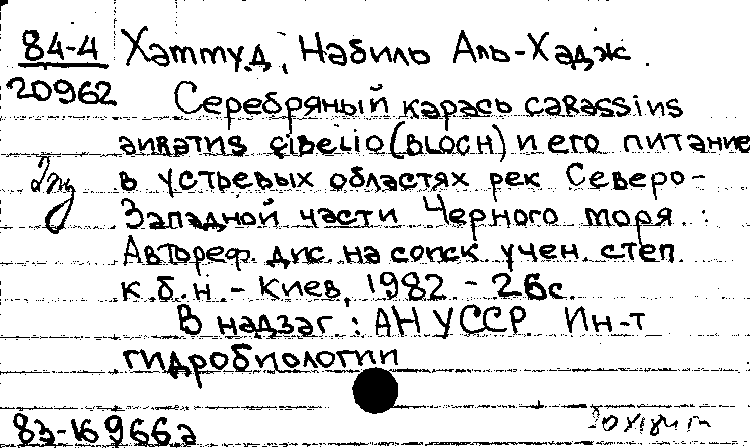 84-4 Хаттуд, Набиль Аль-Хадж.
20962 Серебряный карась carassius
auratus gibelio (BLOCH) и его питание
в устьевых областях рек Северо-
Западной части Черного моря :
Автореф. дис. на соиск. учен. степ.
к.б.н. - Киев, 1982 - 26с.
В надзаг.: АН УССР Ин-т
гидробиологии
83-16966а